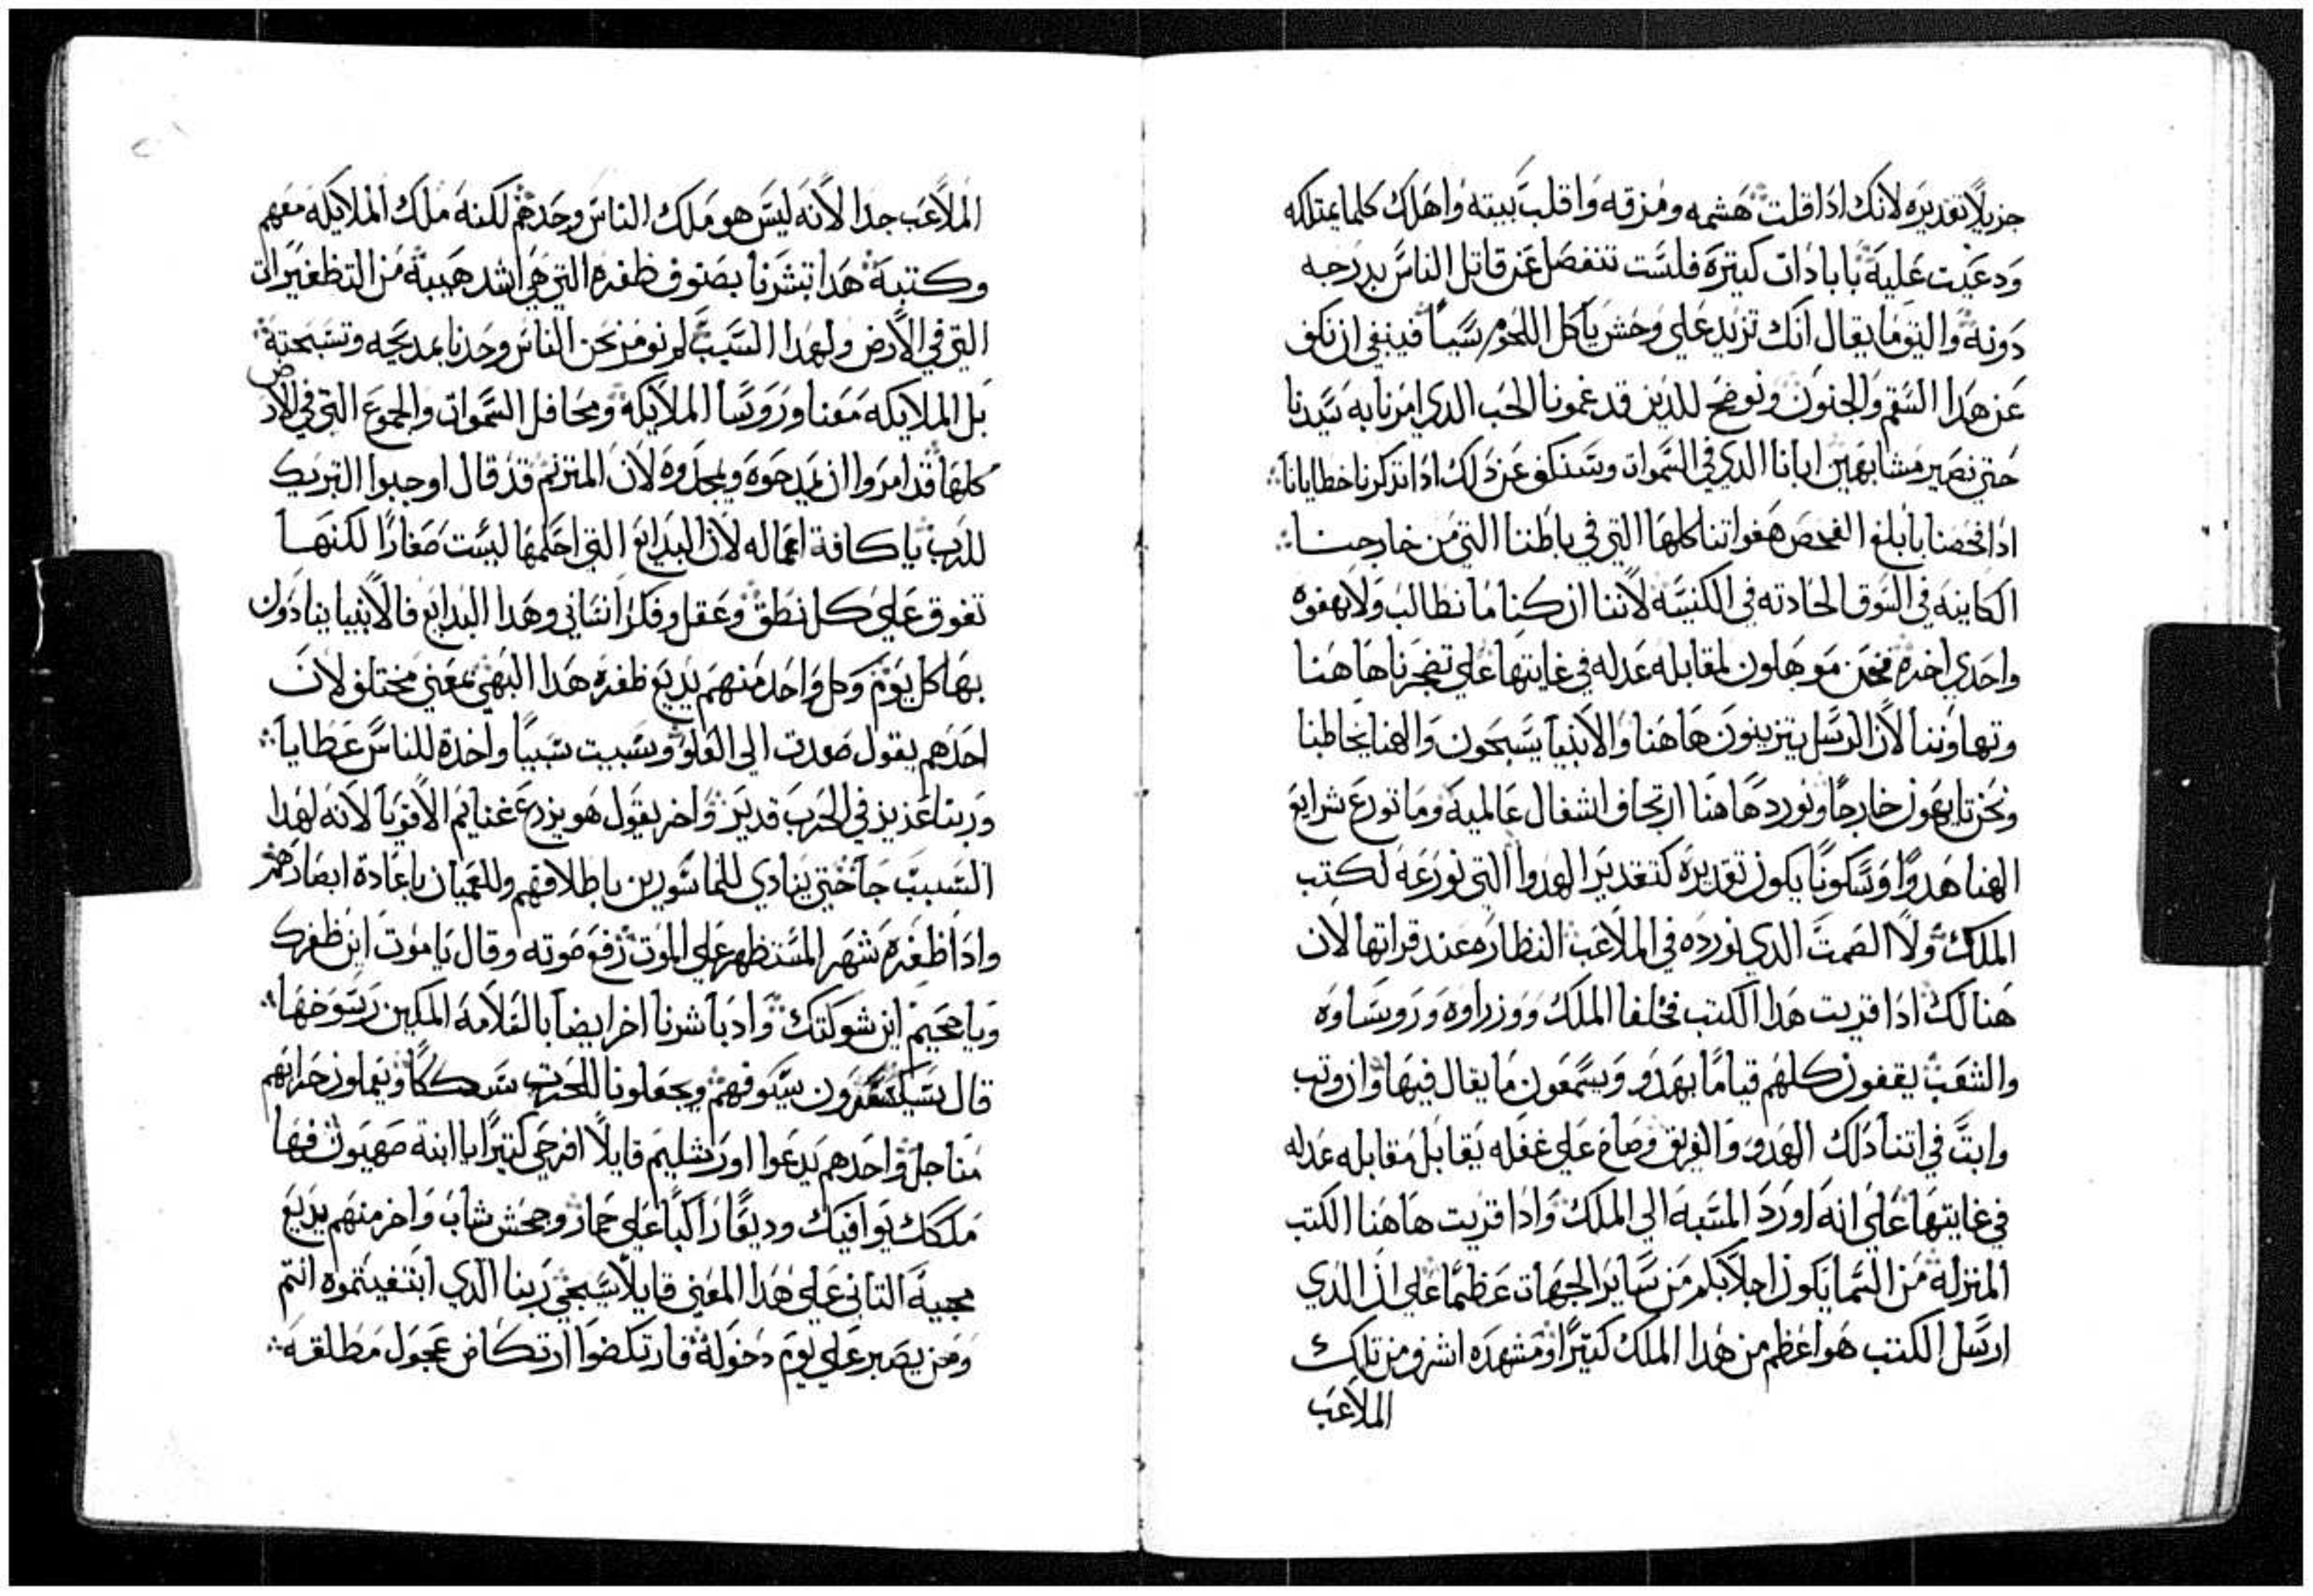 جزيلاً تقديره لانك اذا قلت هشمه ومزقه واقلب بيته واهلك كلما يمتلكه
ودعيت عليه بابادات كتيره فلست تنفصل عن قاتل الناس بدرجه
دونه واليق ما يقال انك تزيد علي وحش ياكل اللحوم شياً فينبغي ان نكف
عن هدا السقم والجنون ونوضح للدين قد غمونا الحب الدي امرنا به سيدنا
حتي نصير مشابهين ابانا الدي في السموات وسنكف عن دلك ادا تدكرنا خطايانا
ادا فحصنا بابلغ الفحص هفواتنا كلها التي في باطننا التي من خارجنا
الكاينه في السوق الحادته في الكنسه لاننا ان كنا ما نطالب ولا بهفوه
واحدي اخره فنحن موهلون لمقابله عدله في غايتها علي تضجرنا هاهنا
وتهاوننا لان الرسل يتزينون هاهنا والانبيا يسبحون والهنا يخاطبنا
ونحن تايهون خارجاً ونورد هاهنا ارتجاف اشغال عالميه وما نورع شرايع
الهنا هدوًا وسكونًا يكون تقديره كتقدير الهدوا التي نورعه لكتب
الملك ولا الصمت الدي نورده في الملاعب النظاره عند قراتها لان
هنالك ادا قريت هدا الكتب فخلفا الملك ووزراوه وروساوه
والشعب يقفون كلهم قيامًا بهدو ويسمعون ما يقال فيها وان وتب
وابتَّ في اتنا دلك الهدو والفريق وصاح علي غفله يقابل مقابله عدله
في غايتها علي انه اورد المسبه الي الملك وادا قريت هاهنا الكتب
المنزله من السما يكون اجلابكم من ساير الجهات عظيمًا علي ان الدي
ارسل الكتب هو اعظم من هدا الملك كتيرًا ومشهده اشرف من تلك
الملاعب
الملاعب جدا لانه ليس هو ملك الناس وحدهم لكنه ملك الملايكه معهم
وكتبه هدا تبشرنا بصنوف ظفره التي هي اشد هيبة من التظفيرات
التي في الارض ولهدا السبب لم نومر نحن الناس وحدنا بمديحه وتسبحته
بل الملايكه معنا وروسا الملايكه ومحافل السموات والجموع التي في الارض
كلها قد امروا ان يمدحوه ويمجدوه لان المترنم قد قال اوجبوا التبريك
للرب يا كافة اعماله لان البدايع التي احكمها ليست صغارًا لكنها
تفوق علي كل نطق وعقل وفكر انساني وهدا البدايع فالانبيا ينادون
بها كل يوم وكل واحد منهم يديع ظفره هدا البهي بمعني مختلف لان
احدهم يقول صعدت الي العلو وسبيت سبيًا واخدة للناس عطايا
وربنا عزيز في الحرب قدير واخر يقول هو يزرع غنايم الاقويا لانه لهدا
السبب جا حتي ينادي للماسورين باطلاقهم وللعميان باعادة ابصارهم
وادا ظفره شهر المستظهر علي الموت رفع صوته وقال يا موت اين ظفرك
ويا جحيم اين شوكتك وادباشرنا اخر ايضا بالسلامه المكين رسوخها
قال سيكسرون سيوفهم ويجعلونا للحرت سككًا ويعملون حرابهم
مناجل واحدهم يدعوا اورشليم قايلاً افرحي كتيرًا يا ابنة صهيون فها
ملكك يوافيك وديعًا راكبًا علي حمار وجحش شاب واخر منهم يديع
مجيه التاني علي هدا المعني قايلاً سيجي ربنا الدي ابتغيتموه انتم
ومن يصبر علي يوم دخوله فارتكضوا ارتكاض عجول مطلقه